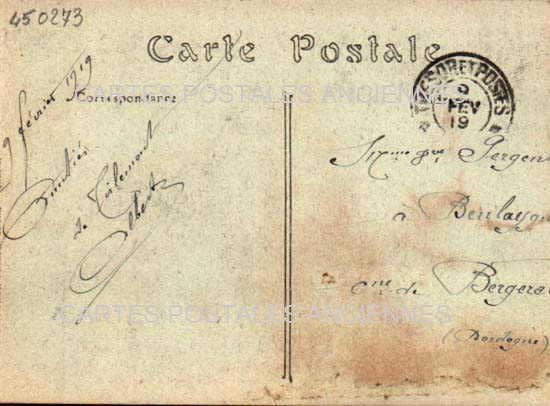 450273
Carte Postale
CARTES POSTALES ANCIENNES
Correspondance
9 février 1919
Amitiés
de Tirlemont
Albert
TRESOR ET POSTES
9
FEV
19
à
de Bergerac
(Dordogne)
CARTES POSTALES ANCIENNES